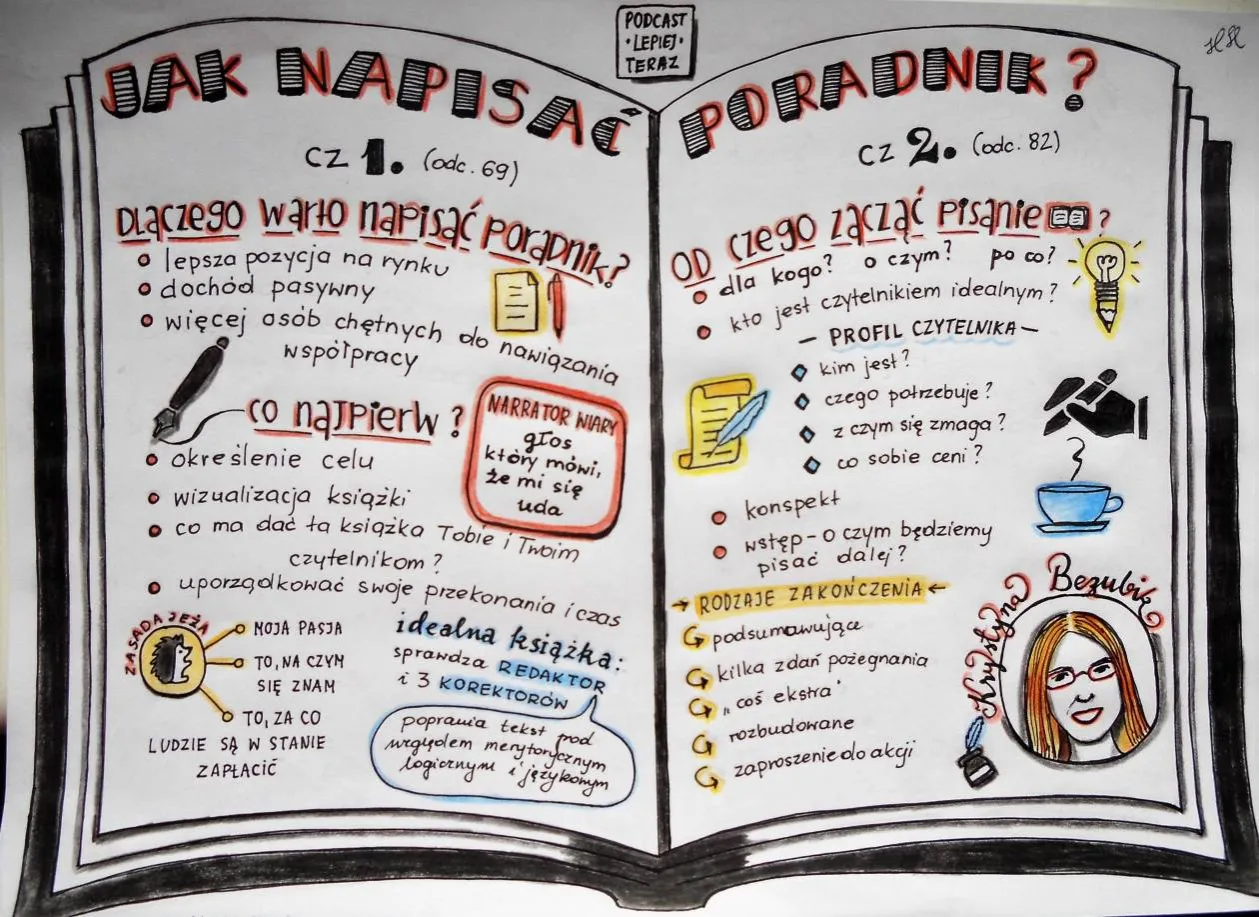 PODCAST
• LEPIEJ •
TERAZ
JAK NAPISAĆ PORADNIK?
CZ 1. (odc. 69)
DLACZEGO WARTO NAPISAĆ PORADNIK?
lepsza pozycja na rynku
dochód pasywny
więcej osób chętnych do nawiązania
współpracy
CO NAJPIERW?
określenie celu
wizualizacja książki
co ma dać ta książka Tobie i Twoim
czytelnikom?
uporządkować swoje przekonania i czas
NARRATOR WIARY
głos
który mówi,
że mi się
uda
ZASADA JEŻA
MOJA PASJA
TO, NA CZYM
SIĘ ZNAM
TO, ZA CO
LUDZIE SĄ W STANIE
ZAPŁACIĆ
idealna książka:
sprawdza REDAKTOR
i 3 KOREKTORÓW
poprawia tekst pod
względem merytorycznym
logicznym i językowym
CZ 2. (odc. 82)
OD CZEGO ZACZĄĆ PISANIE?
dla kogo? o czym? po co?
kto jest czytelnikiem idealnym?
— PROFIL CZYTELNIKA —
kim jest?
czego potrzebuje?
z czym się zmaga?
co sobie ceni?
konspekt
wstęp - o czym będziemy
pisać dalej?
→ RODZAJE ZAKOŃCZENIA ←
podsumowujące
kilka zdań pożegnania
„coś ekstra"
rozbudowane
zaproszenie do akcji
Krystyna Bezubik